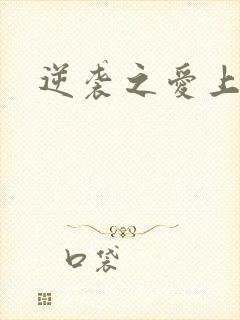 逆袭之爱上
口袋